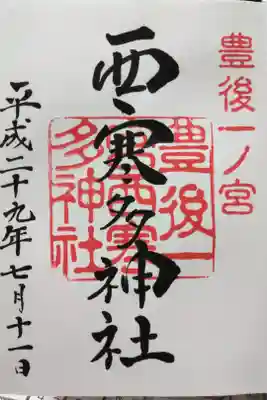 豊後一ノ宮
西寒多神社
豊後一
宮西寒
多神社
平成二十九年七月十一日